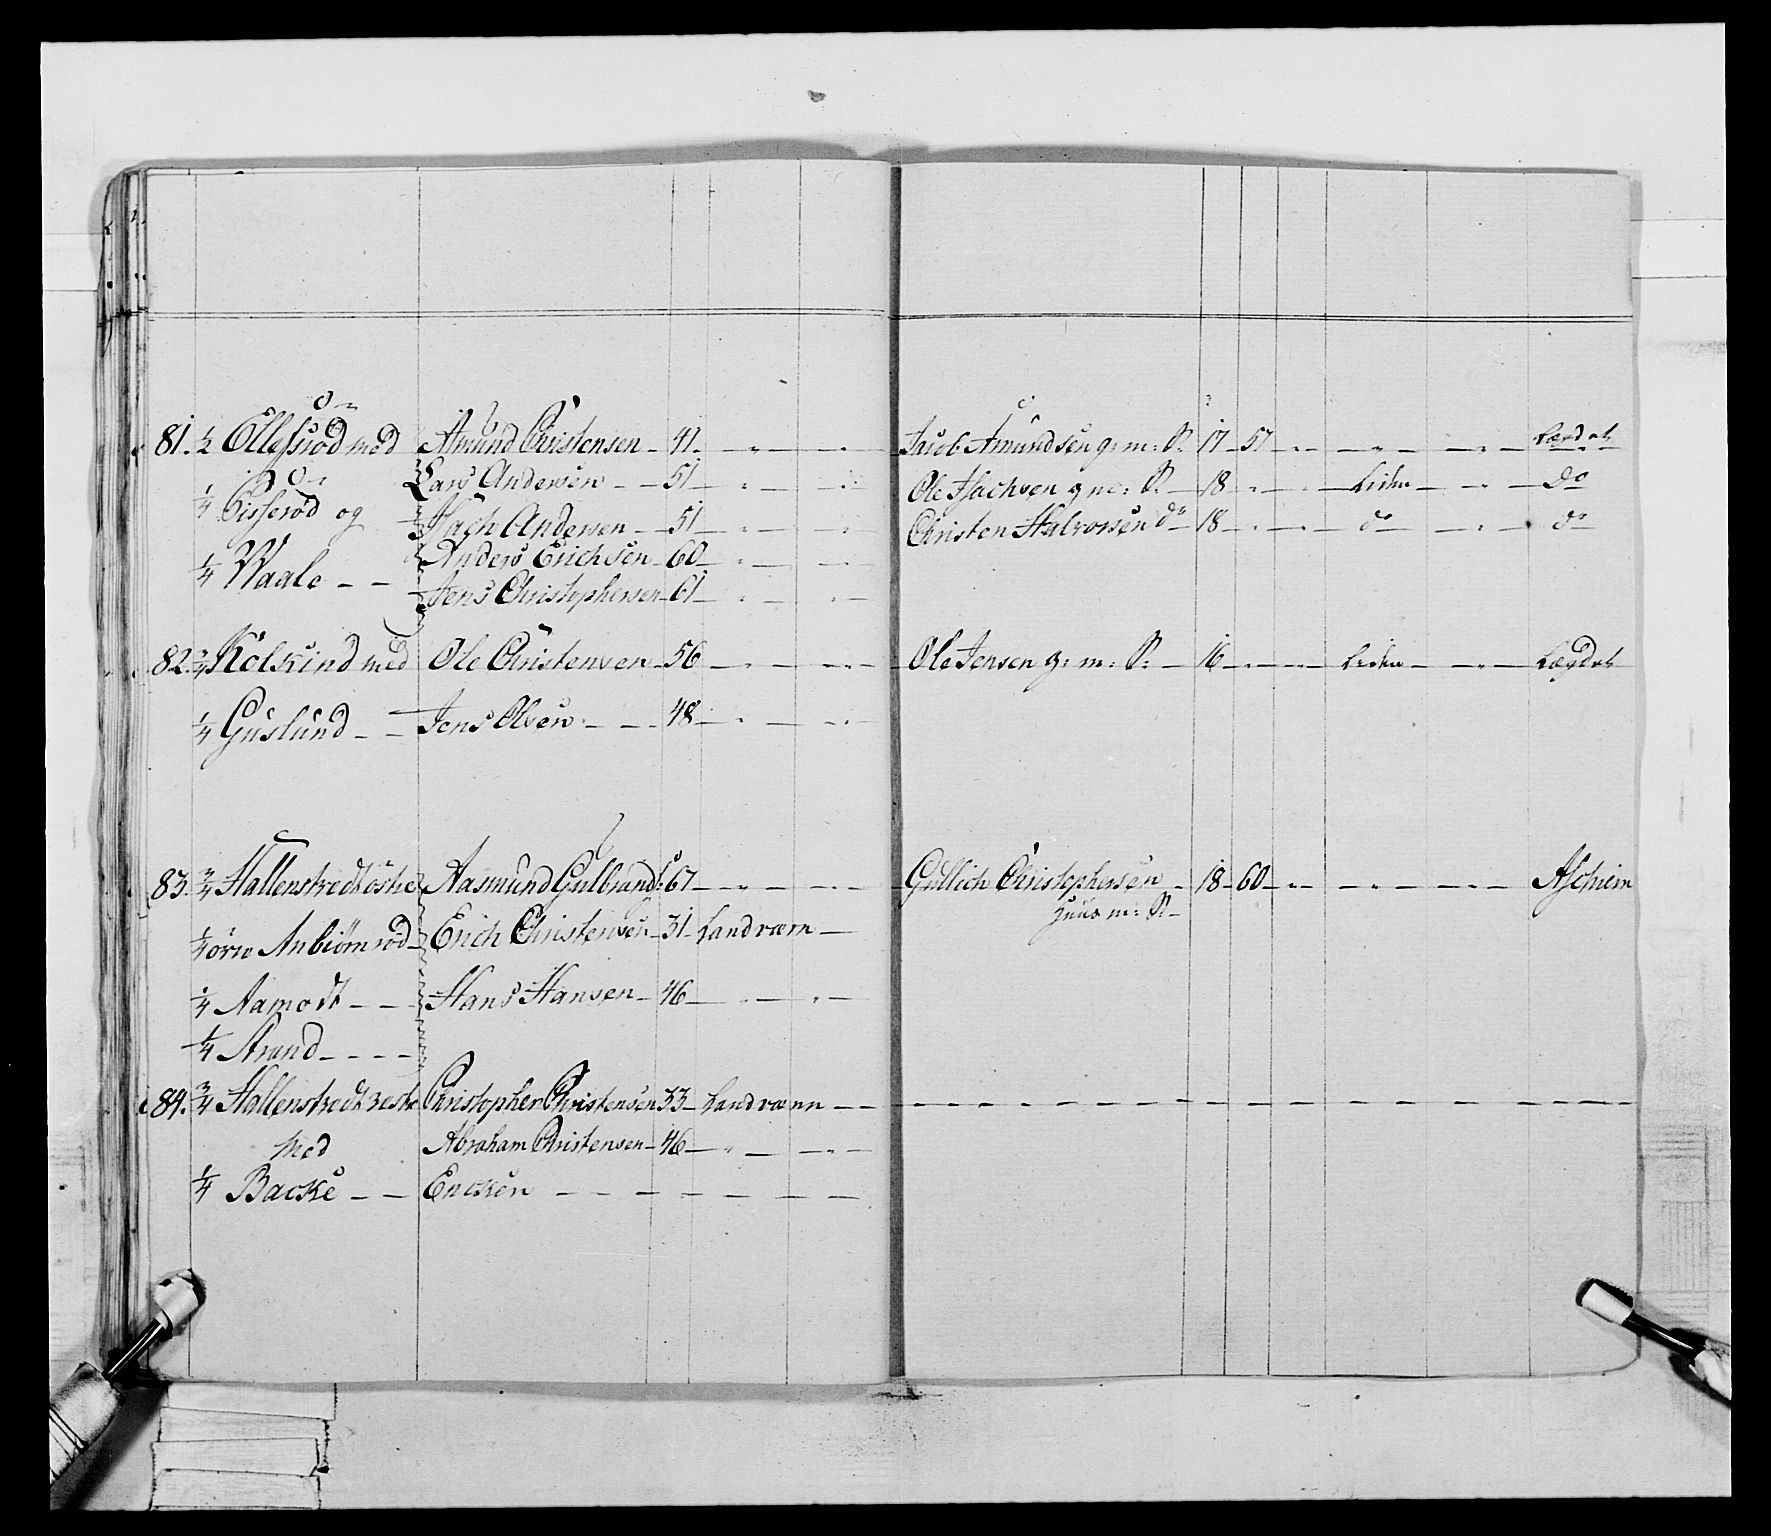 81. ½ Ellessröd med Amund Christensen - 41. - " - - " - Jacob Amundsen g: m: S: 17 - 57 - " - - " - - " - Lægdet
¼ Gisseröd og Lars Andersen - - 51 - " - - " - Ole Isachsen g m: S: - 18 - " - - " - liden - " - Do
Isach Andersen - 51 - " - - " - Christen Halvorsen do - 18 - " - - " - do - " - do
¼ Waale - - Anders Erichsen - 60 - " - - " -
Jens Christophersen - 61 - " - - " -
82. ¾ Kolkind med Ole Christensen - 56 - " - - " - Ole Jensen g: m: S: - 16 - " - - " - liden - " - Lægdet
¼ Guslund - - Jens Olsen - - 48 - " - - " -
83. ¾ Hallenstvedt östre Aasmund Gulbrands: 67 - " - - " - Gullich Christophersen - 18 - 60 - " - - " - - " - Aschiem
huus m: S: -
¼ örre Anbiörnröd - Erich Christensen - 31 - Landværn -
¼ Aamodt - - Hans Hansen - 46 - " - " -
¼ Strand - - - -
84. ¾ Hallenstvedt vestre Christopher Christensen 33 - Landværn - -
med Abraham Christensen - 46 - " - - " -
¼ Backe - - Encken - - - - - - -